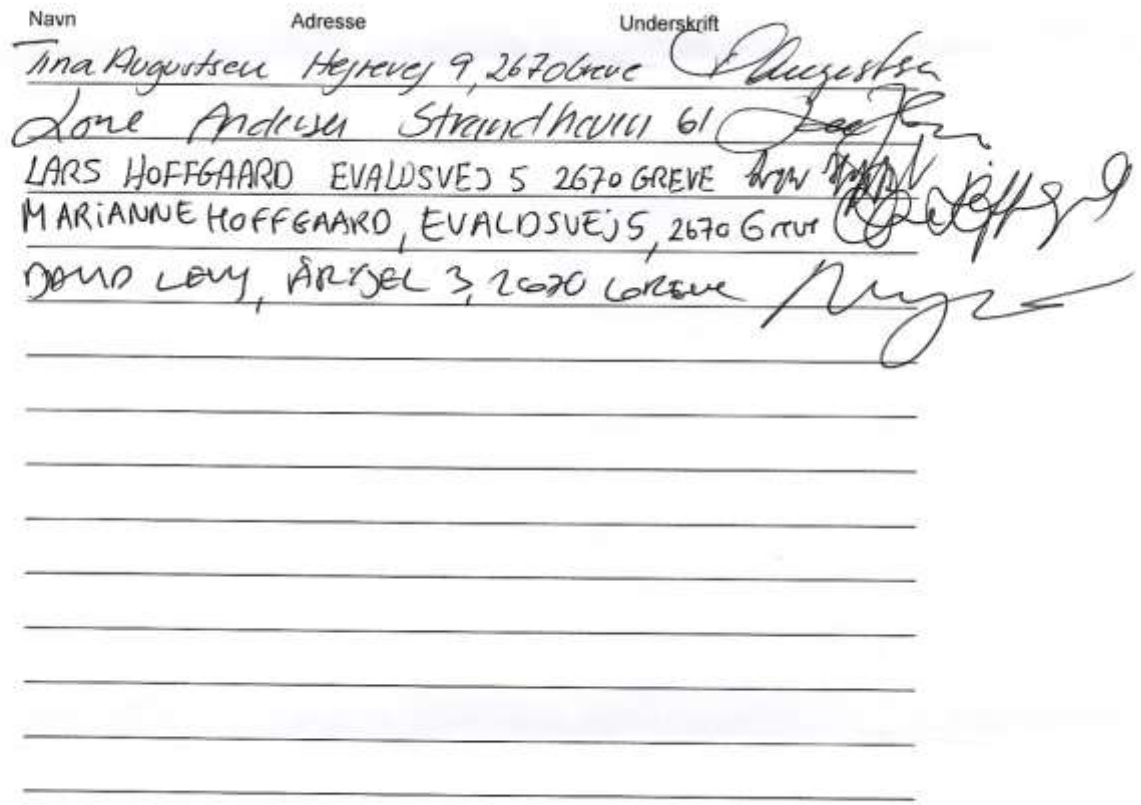 Navn Adresse Underskrift
Tina Augustsen Hejrevej 9, 2670 Greve
Lone Andersen Strandhaven 61
LARS HOFFGAARD EVALDSVEJ 5 2670 GREVE
MARiANNE HOFFGAARD, EVALDSVEJ 5, 2670 Greve
DAVID LEVY, 3, 2670 GREVE